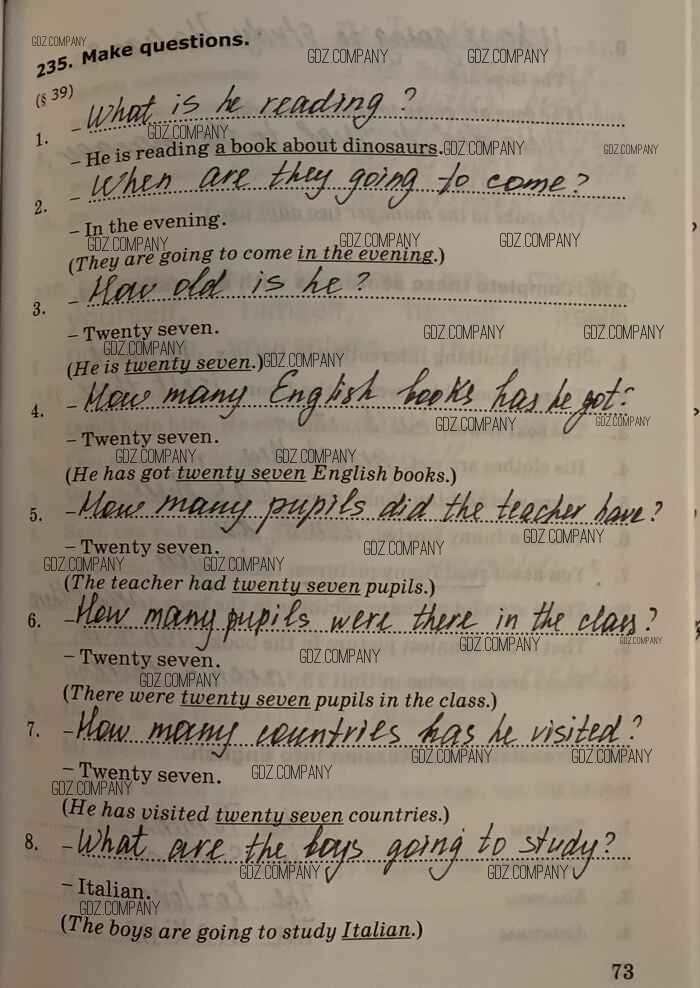 GDZ.COMPANY
235. Make questions.
GDZ.COMPANY GDZ.COMPANY
(§ 39)
1. – What is he reading?
GDZ.COMPANY
– He is reading a book about dinosaurs. GDZ.COMPANY GDZ.COMPANY
2. – When are they going to come?
– In the evening.
GDZ.COMPANY GDZ.COMPANY GDZ.COMPANY
(They are going to come in the evening.)
3. – How old is he?
– Twenty seven. GDZ.COMPANY GDZ.COMPANY
GDZ.COMPANY
(He is twenty seven.) GDZ.COMPANY
4. – How many English books has he got?
GDZ.COMPANY GDZ.COMPANY
– Twenty seven.
GDZ.COMPANY GDZ.COMPANY
(He has got twenty seven English books.)
5. – How many pupils did the teacher have?
– Twenty seven. GDZ.COMPANY GDZ.COMPANY
GDZ.COMPANY GDZ.COMPANY
(The teacher had twenty seven pupils.)
6. – How many pupils were there in the class?
– Twenty seven. GDZ.COMPANY GDZ.COMPANY GDZ.COMPANY
GDZ.COMPANY
(There were twenty seven pupils in the class.)
7. – How many countries has he visited?
GDZ.COMPANY GDZ.COMPANY
– Twenty seven. GDZ.COMPANY
GDZ.COMPANY
(He has visited twenty seven countries.)
8. – What are the boys going to study?
GDZ.COMPANY GDZ.COMPANY
– Italian.
GDZ.COMPANY
(The boys are going to study Italian.)
73